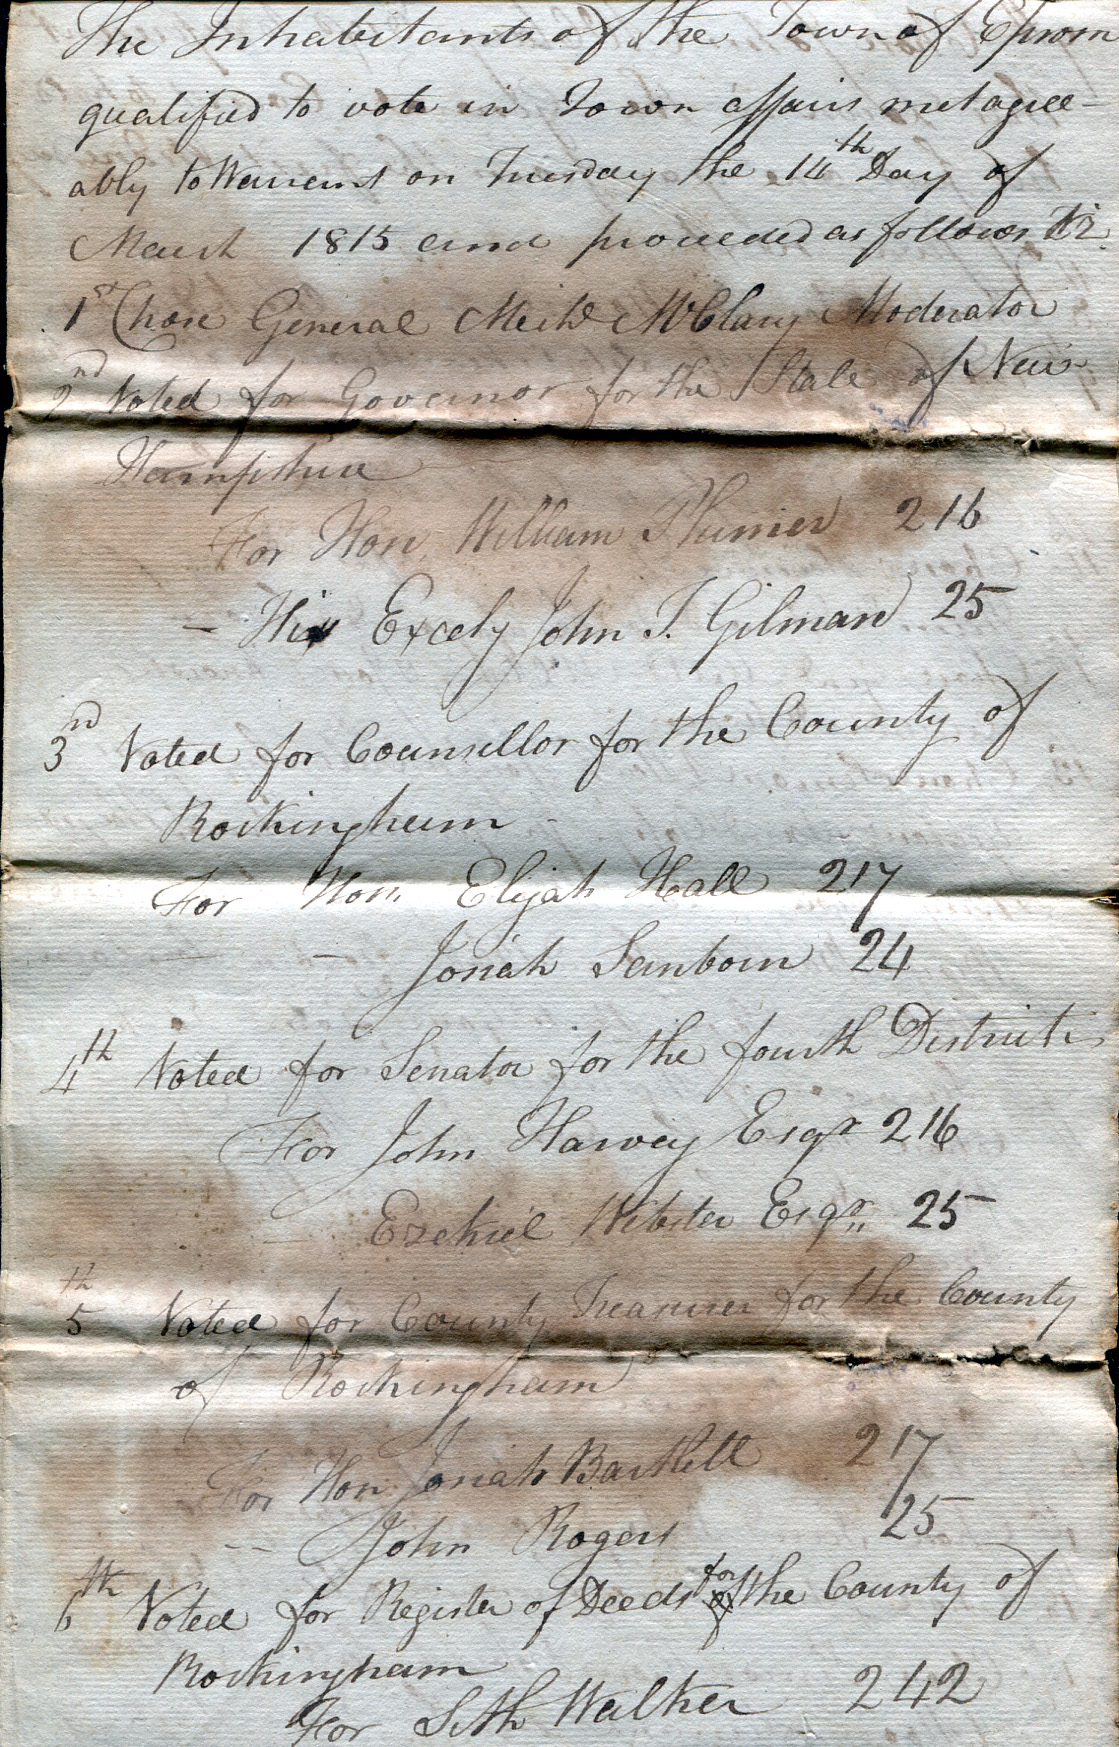 The Inhabitants of the Town of Epsom
qualified to vote in Town affairs met agree-
ably to Warrent on Tuesday the 14th Day of
March 1815 and proceeded as follows Viz
1st Chose General Mich'l McClary Moderator
2nd Voted for Governor for the State of New
Hampshire
For Hon. William Plumer 216
— His Excely John T. Gilman 25
3rd Voted for Counsellor for the County of
Rockingham
For Hon. Elijah Hall 217
— Josiah Sanborn 24
4th Voted for Senator for the fourth District
For John Harvey Esqr 216
Ezekiel Webster Esqr. 25
5th Voted for County Treasurer for the County
of Rockingham
For Hon Josiah Bartlett 217
— John Rogers 25
6th Voted for Register of Deeds for the County of
Rockingham
For Seth Walker 242